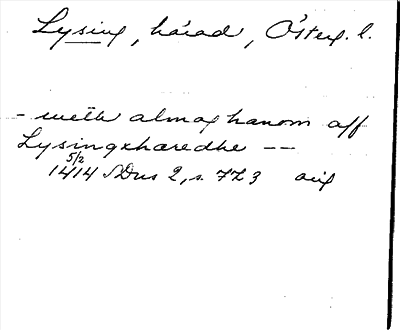 Lysing, härad, Österg. l.
- meth almoghanom aff
Lysingxharedhe --
5/2
1414 SDns 2, s. 723 orig